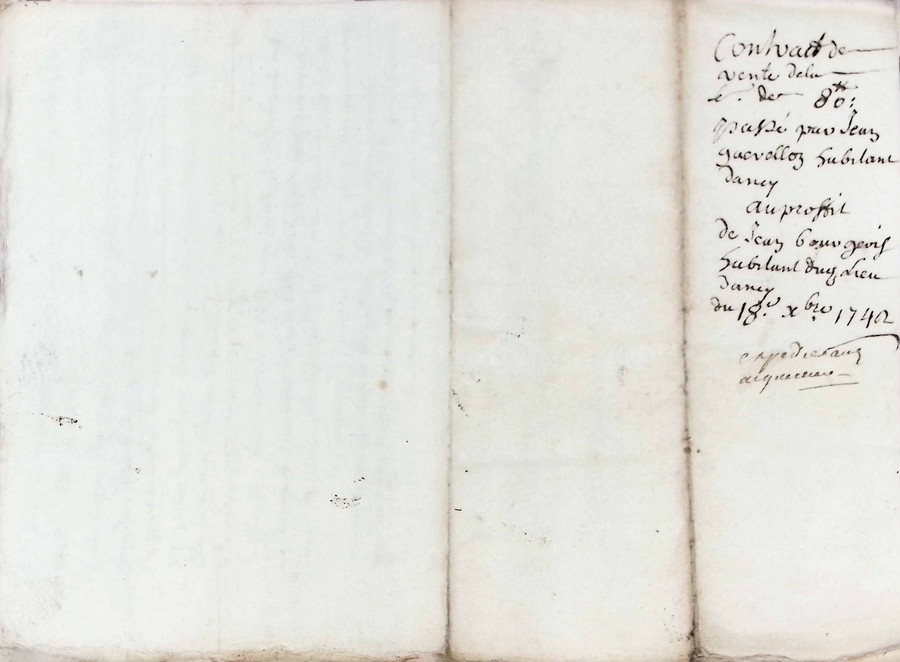 Contract de
vente dela
s. de 80tt:
passé par Jean
quevellon habitant
dancy
au proffit
de Jean bourgeois
habitant dud lieu
dancy
du 18e. xbre 1742
expedié aud
acquereur